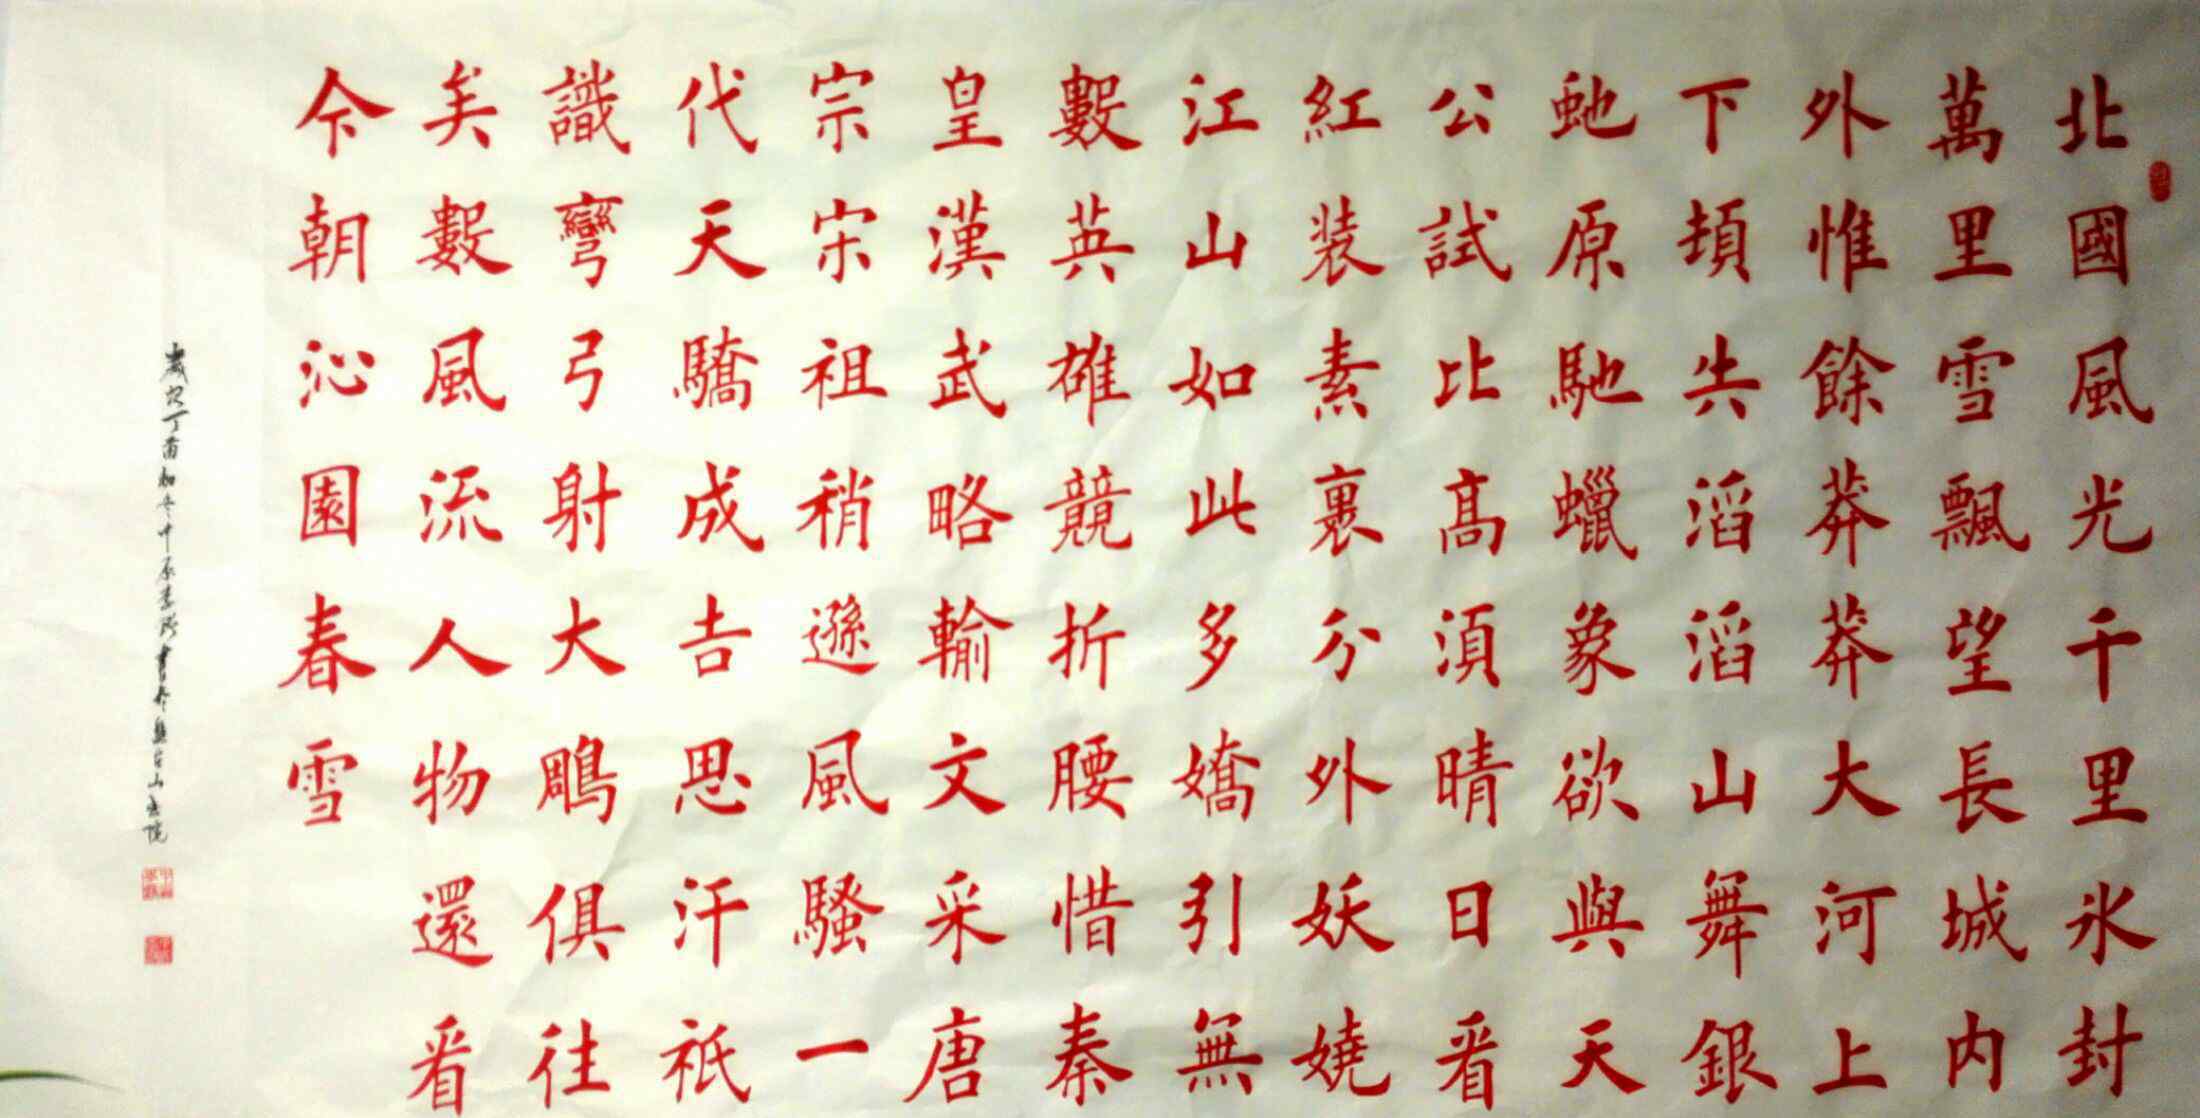 北國風光千里氷封
萬里雪飄望長城内
外惟餘莽莽大河上
下頓失滔滔山舞銀
虵原馳蠟象欲與天
公試比髙須晴日看
紅装素裹分外妖嬈
江山如此多嬌引無
數英雄競折腰惜秦
皇漢武略輸文采唐
宗宋祖稍遜風騷一
代天驕成吉思汗祇
識彎弓射大鵰俱往
矣數風流人物還看
今朝沁園春雪
歲次丁酉初冬中原李書於台山書院